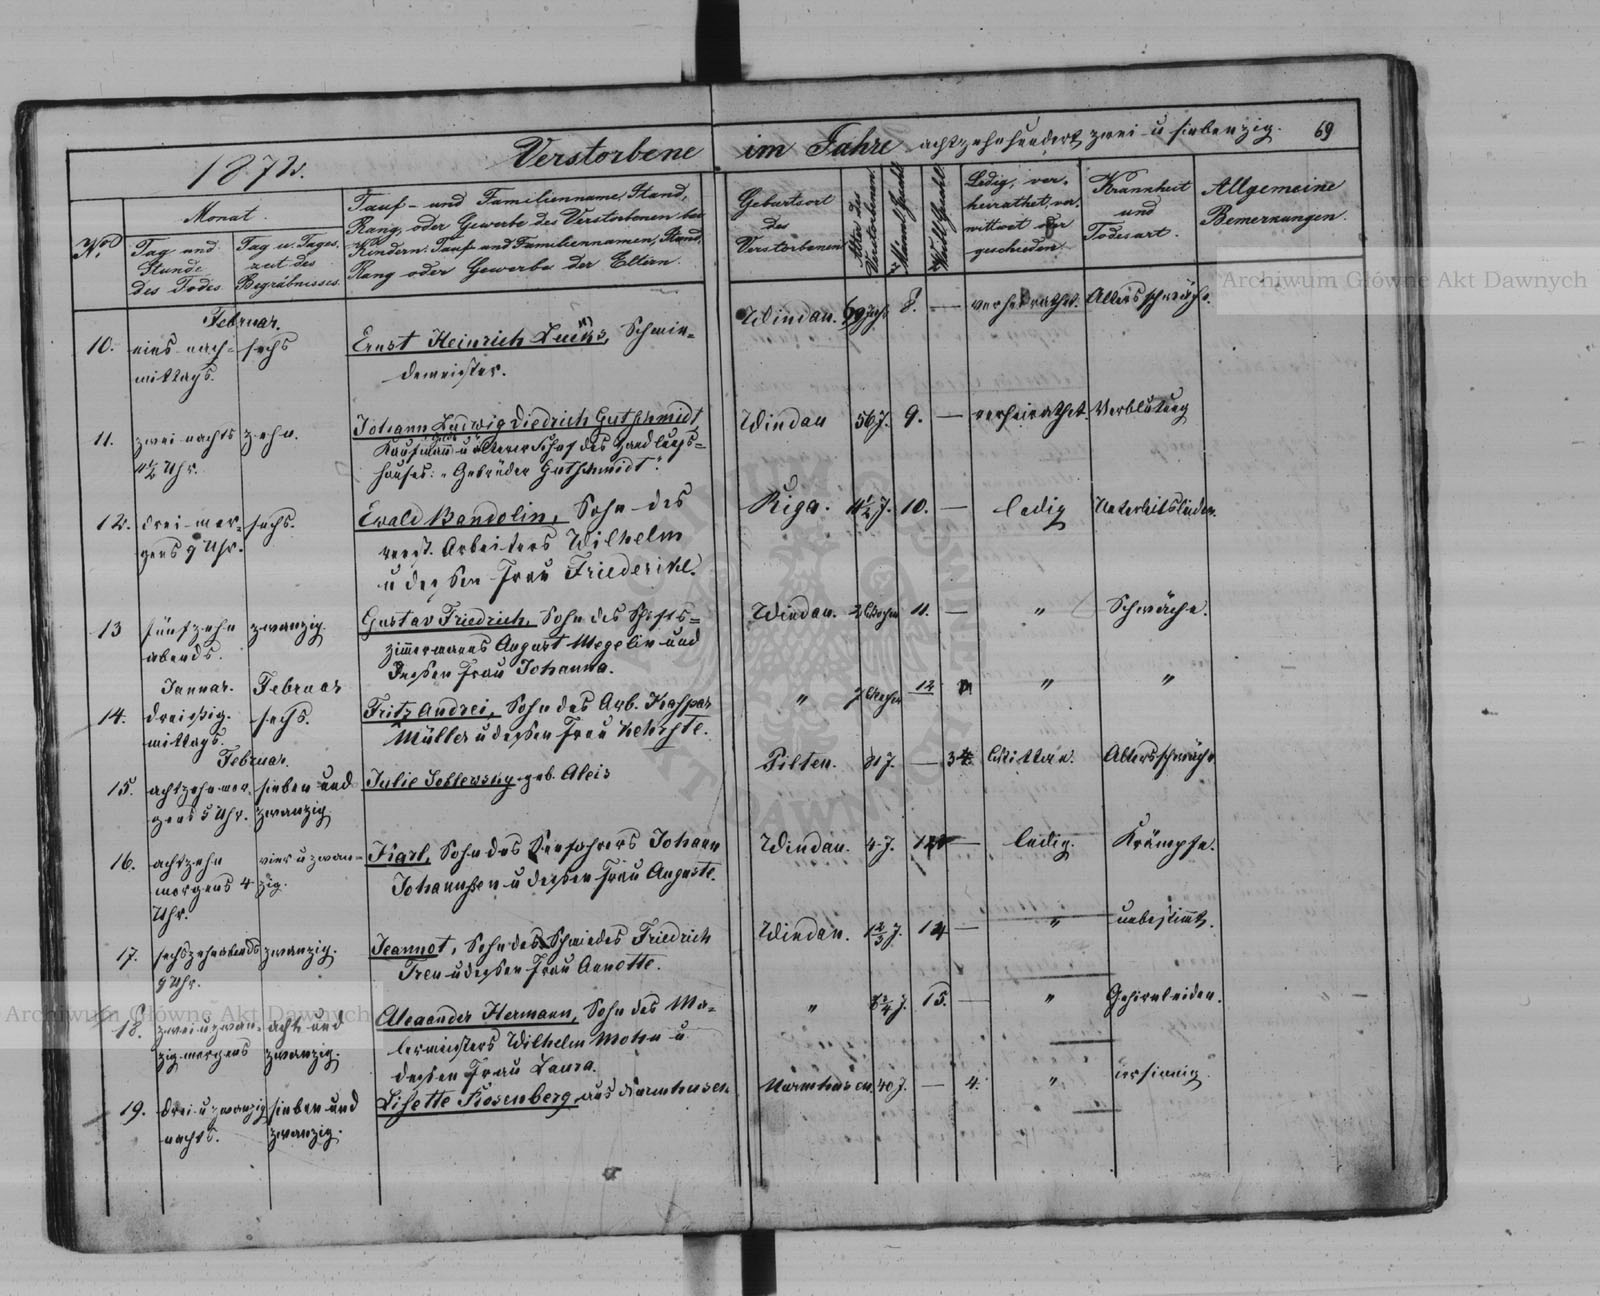 1872. Verstorbene im Jahre achtzehnhundert zwei u siebenzig. 69
No.
Monat.
Tag und
Stunde
des Todes
Tag u. Tages-
zeit des
Begräbnisses.
Tauf- und Familienname, Stand,
Rang, oder Gewerbe des Verstorbenen bei
Kindern: Tauf und Familiennamen, Stand,
Rang oder Gewerbe der Eltern.
Geburtsort
des
Verstorbenen
Alter des
Verstorbenen.
Männl. Geschl.
Weibl. Geschl.
Ledig, ver-
heirathet, ver-
wittwet oder
geschieden.
Krankheit
und
Todesart.
Allgemeine
Bemerkungen.
Februar.
10. eins nach- sechs Ernst Heinrich Schmie- Windau. 8. — verheirathet. Altersschwäche.
mittags. demeister.
11. zwei nachts zehn. Johann Ludwig Diedrich Gutschmidt, Windau 56 J. 9. — verheirathet. Verblutung
Uhr. Kaufmann u älterer Chef des Handlungs-
hauses: "Gebrüder Gutschmidt".
12. drei mor- sechs. Ewald Bandolin, Sohn des Riga. 10. — ledig Unterleibsleiden.
gens 9 Uhr. verst. Arbeiters Wilhelm
u dessen Frau Friederike.
13 fünfzehn zwanzig. Gustav Friedrich, Sohn des Schiffs- Windau. 2 Wochen 11. — " Schwäche.
abends. zimmermanns August Megelin und
dessen Frau Johanna.
Januar. Februar
14. dreißig. sechs. Fritz Andrei, Sohn des Arb. Kaspar " 7 Wochen 12 " "
mittags. Müller u dessen Frau
Februar.
15. achtzehn mor- sieben und Julie geb. Aleis Pilten. 81 J. — 3 Wittwe. Altersschwäche
gens 5 Uhr. zwanzig
16. achtzehn vier u zwan- Karl, Sohn des Seefahrers Johann Windau. 4 J. — ledig. Krämpfe.
morgens 4 zig. Johannsen u dessen Frau Auguste.
Uhr.
17. sechszehn abends zwanzig. Jeannot, Sohn des Schmiedes Friedrich Windau. 1 2/3 J. 14 — " unbestimmt.
9 Uhr. Treu u dessen Frau Annette.
18. zwei u zwan- acht und Alexander Hermann, Sohn des Ma- " 3/4 J. 15. — " Gehirnleiden.
zig morgens zwanzig. lermeisters Wilhelm Mohn u
dessen Frau Laura.
19. drei u zwanzig sieben und Lisette Rosenberg aus Nurmhusen Nurmhusen. 40 J. — 4. " irrsinnig.
nachts. zwanzig.
Archiwum Główne Akt Dawnych
Archiwum Główne Akt Dawnych